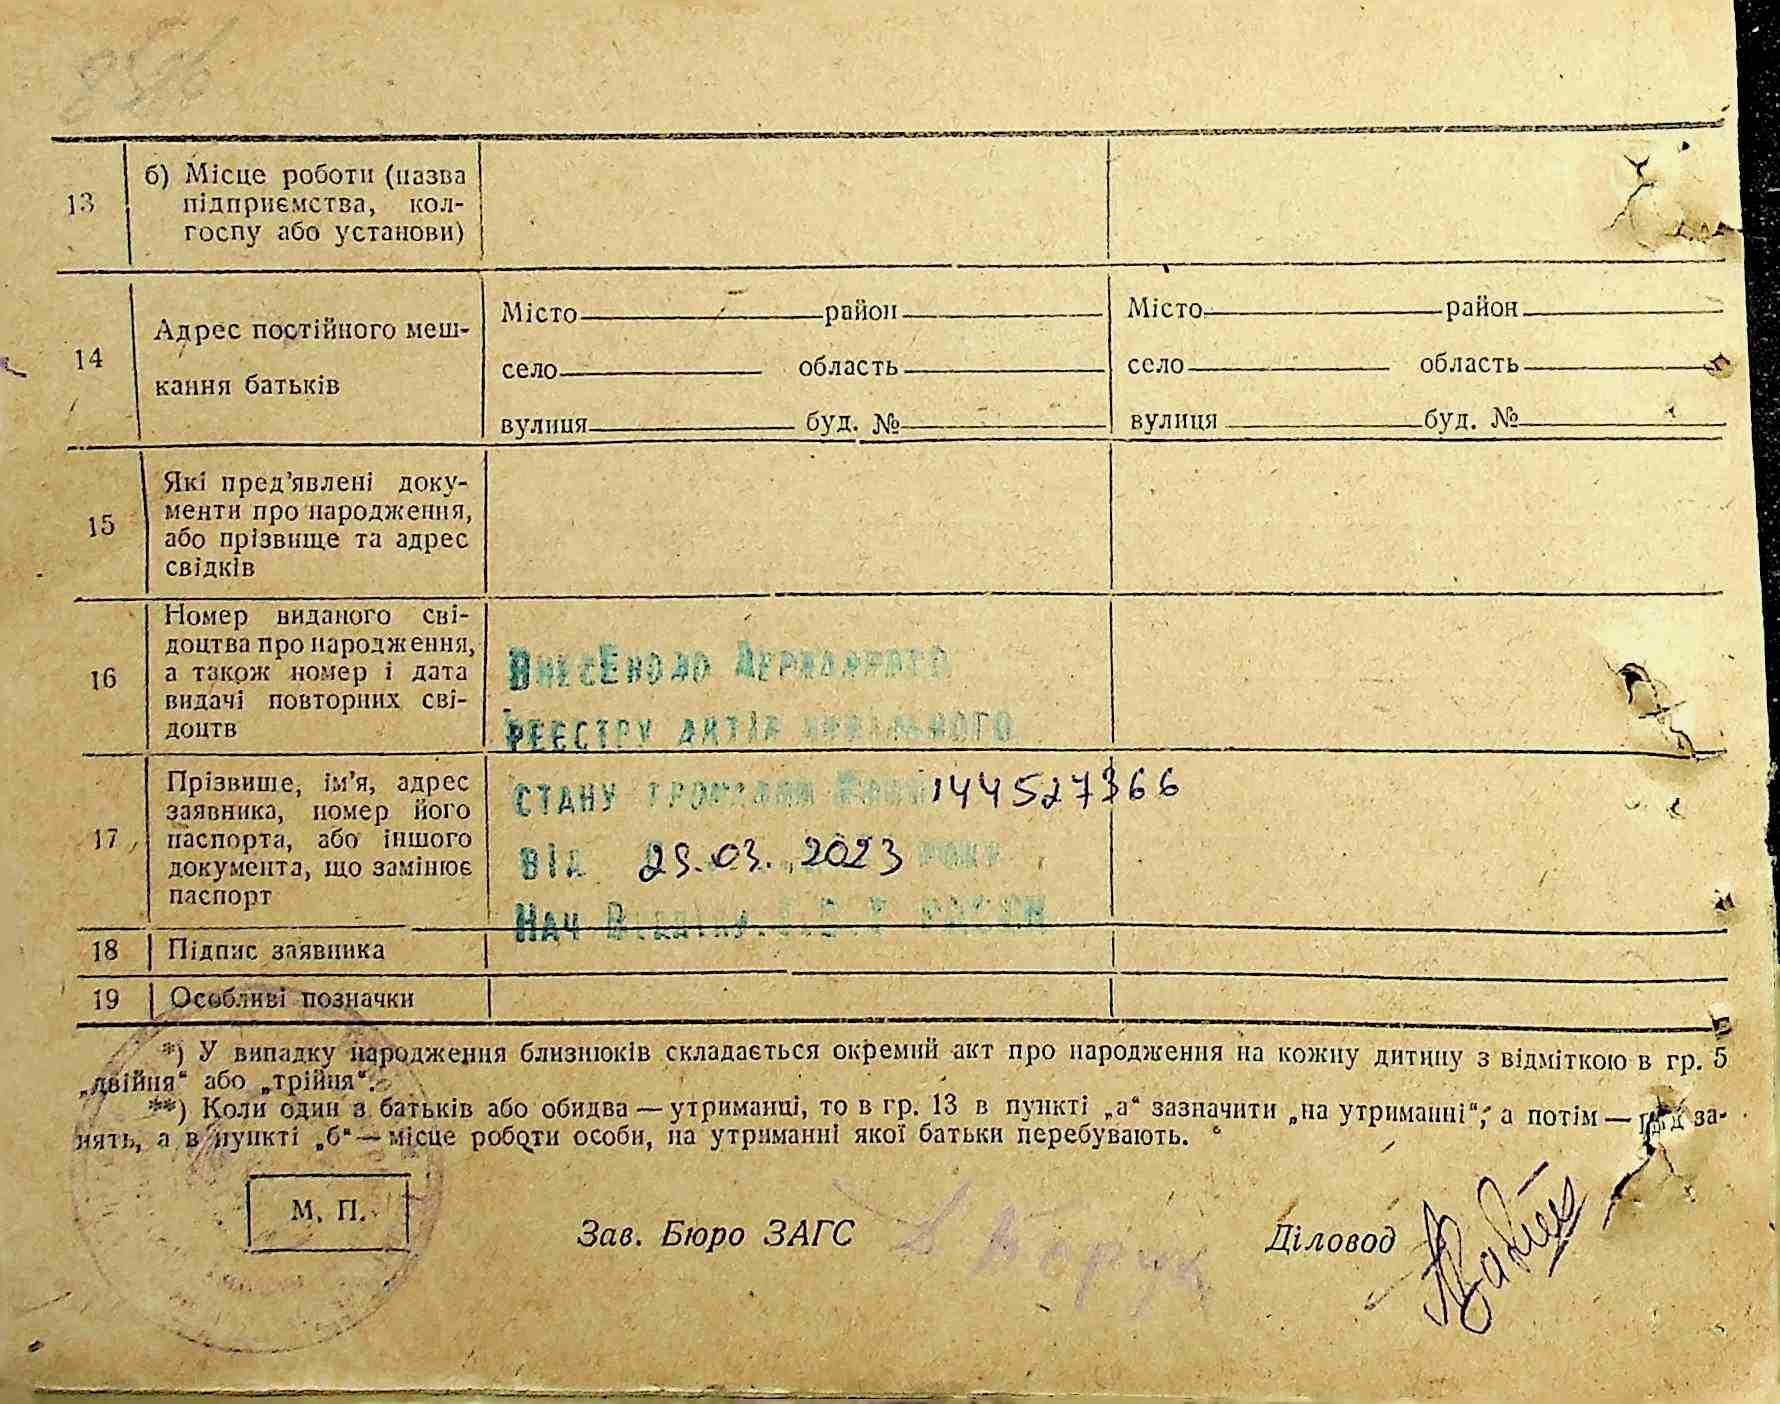 13 б) Місце роботи (назва
підприємства, кол-
госпу або установи)
14 Адрес постійного меш-
кання батьків
Місто район
село область
вулиця буд. №
Місто район
село область
вулиця буд. №
15 Які пред’явлені доку-
менти про народження,
або прізвище та адрес
свідків
16 Номер виданого сві-
доцтва про народження,
а також номер і дата
видачі повторних сві-
доцтв
ВнесЕно до Державного
реєстру актів цивільного
17 Прізвище, ім’я, адрес
заявника, номер його
паспорта, або іншого
документа, що замінює
паспорт
стану громадян 144527366
від .03.2023 року
Нач Відділу
18 Підпис заявника
19 Особливі позначки
*) У випадку народження близнюків складається окремий акт про народження на кожну дитину з відміткою в гр. 5
„двійня“ або „трійня“.
**) Коли один з батьків або обидва — утриманці, то в гр. 13 в пункті „а“ зазначити „на утриманні“, а потім — рід за-
нять, а в пункті „б“ — місце роботи особи, на утриманні якої батьки перебувають.
М. П.
Зав. Бюро ЗАГС
Діловод